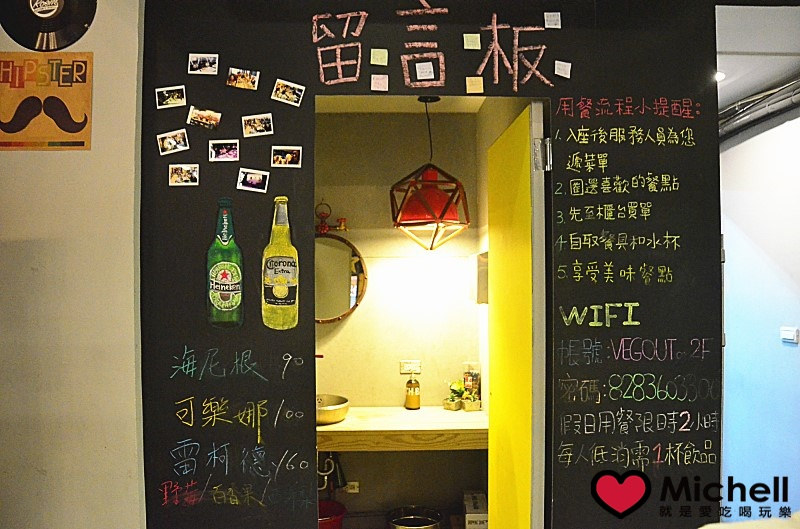 留言板
HIPSTER
用餐流程小提醒:
1.入座後服務人員為您
遞菜單
2.圈選喜歡的餐點
3.先至櫃台買單
4.自取餐具和水杯
5.享受美味餐點
WIFI
帳號:VEGOUT 2F
密碼:82836033
假日用餐限時2小時
每人低消需1杯飲品
Heineken
Corona
Extra
海尼根 90
可樂娜 100
雷柯德 160
野莓/百香果/
Michell
就是愛吃喝玩樂